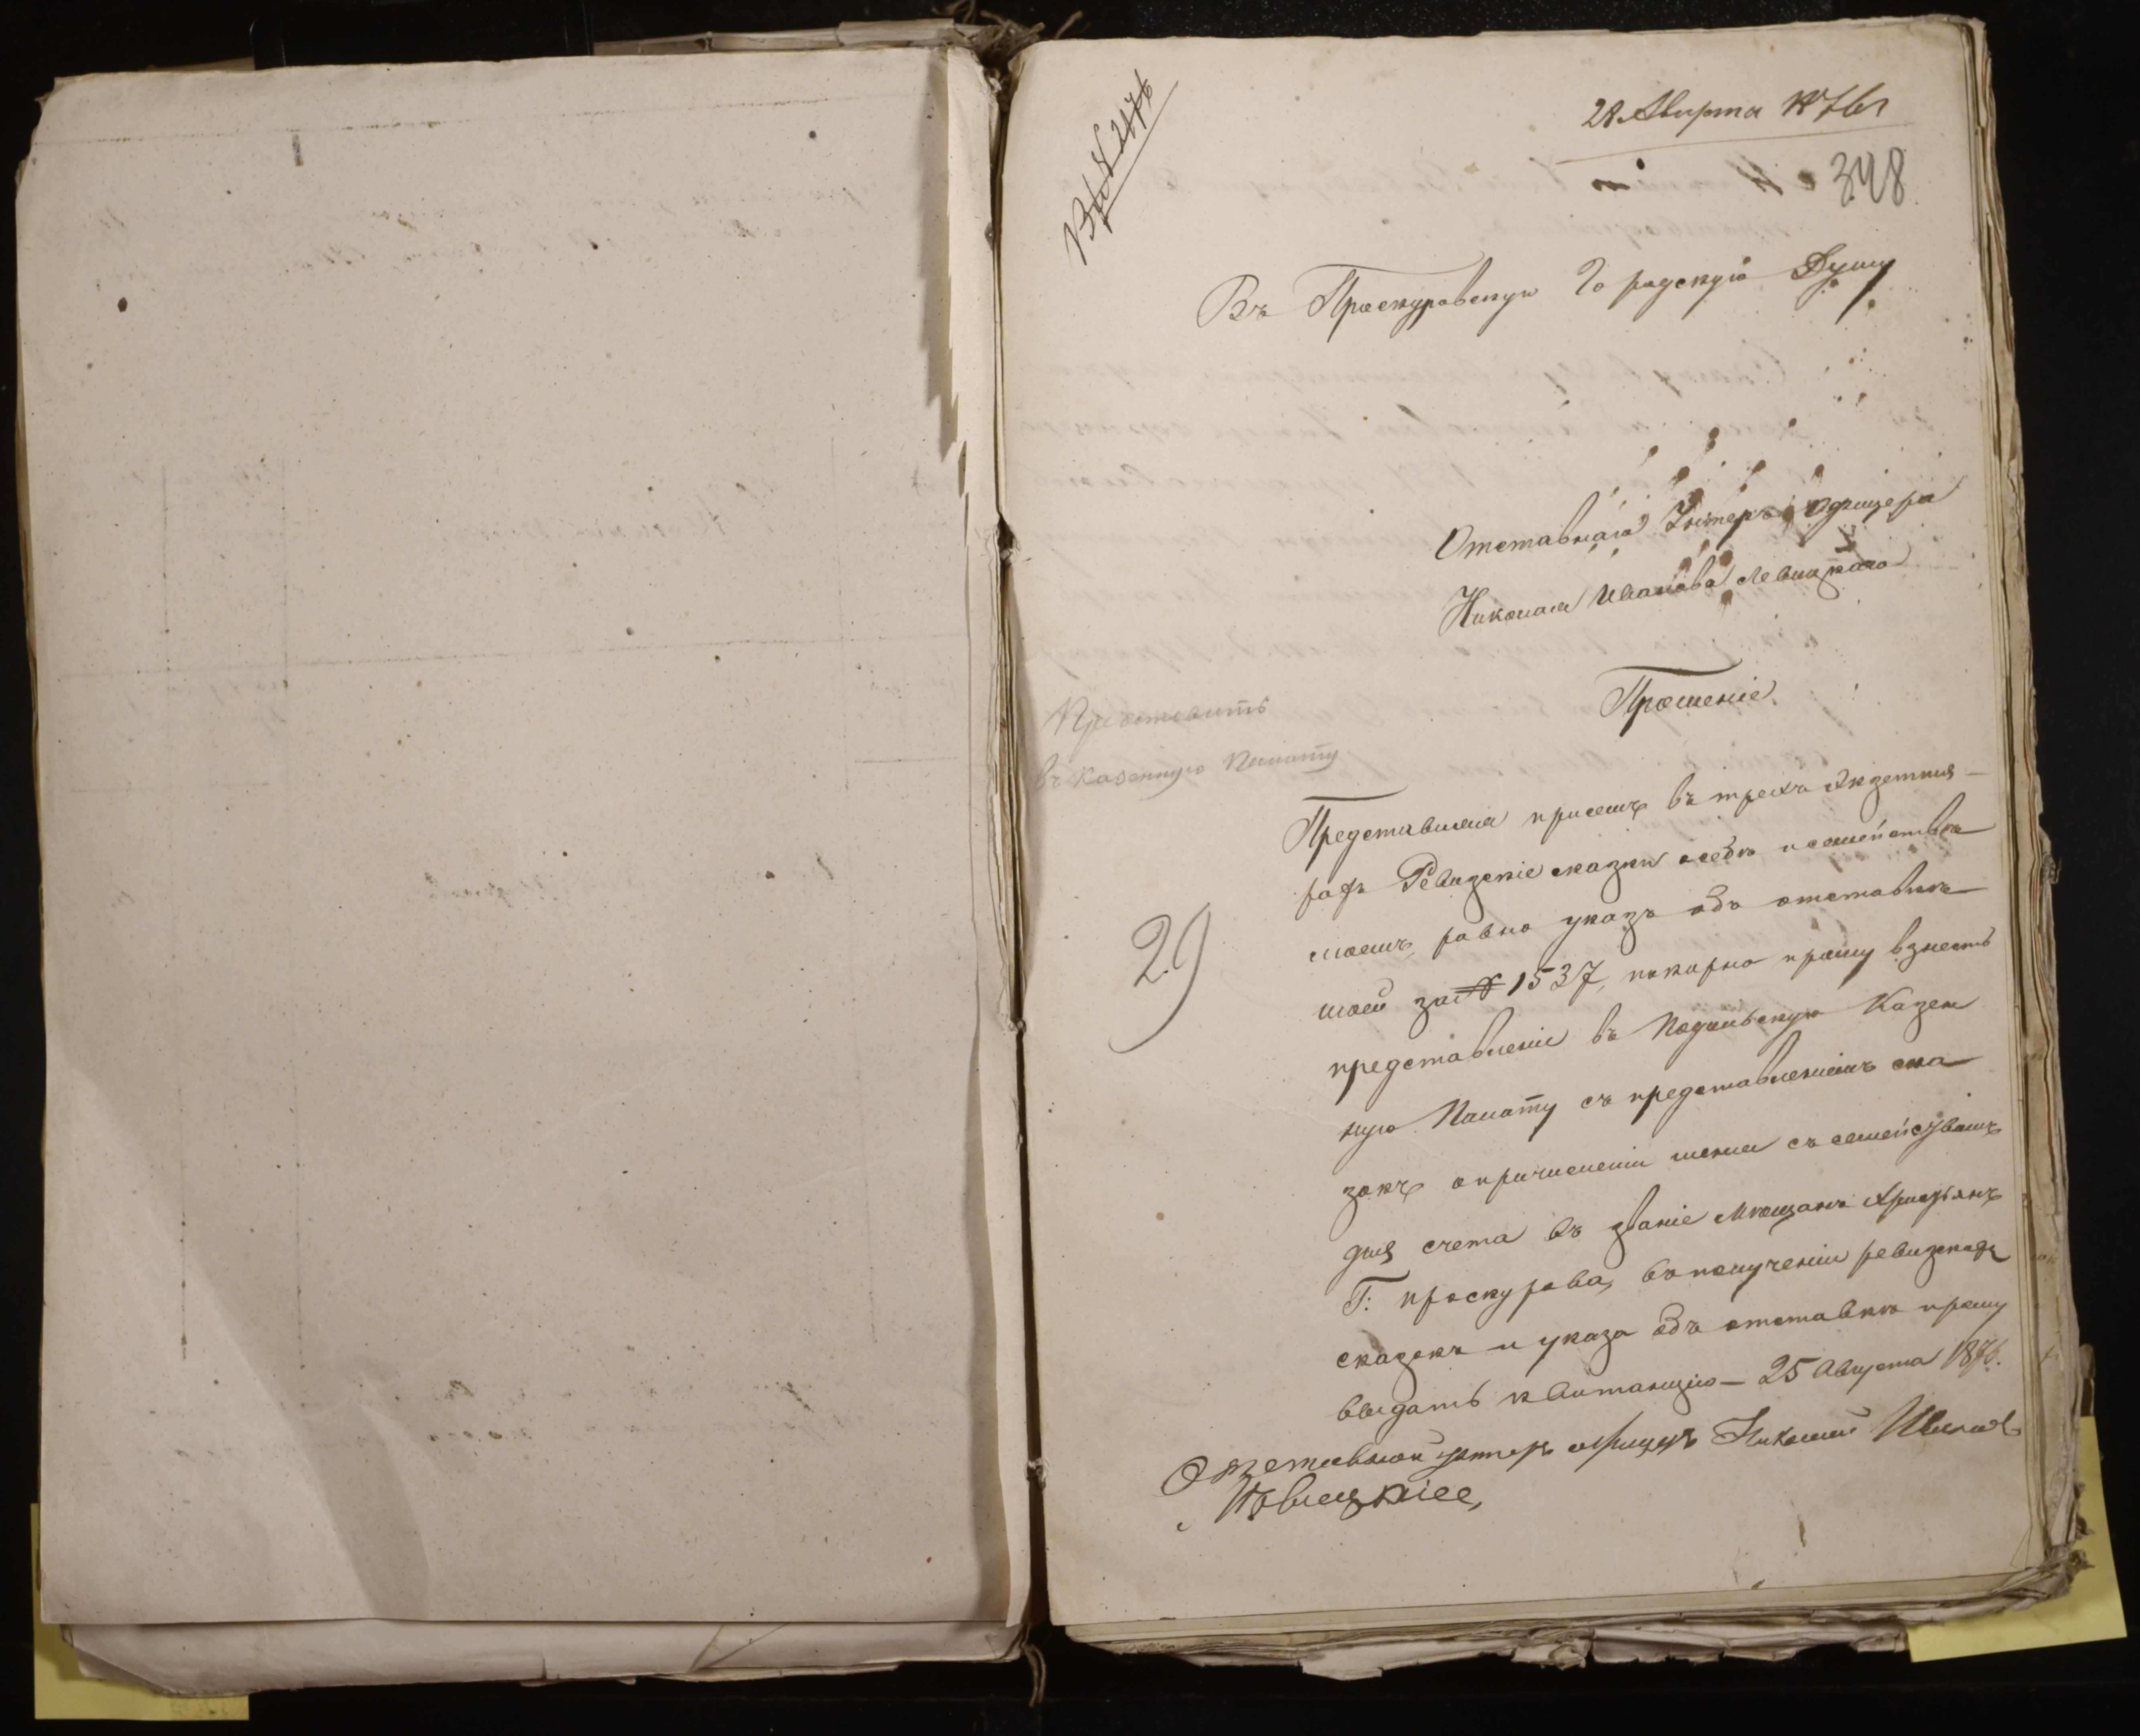 Вх № 2176
28 Августа 1876 г
348
Въ Проскуровскую Городскую Думу
Отставнаго Унтеръ офицера
Николая Иванова Левицкаго
Прошеніе
Представить
въ Казенную Палату
29
Представляя присемъ въ трехъ Екземпля-
рахъ Ревизскіе сказки осебѣ исемействѣ
моемъ, равно указъ объ отставкѣ
моей за № 1537, покорно прошу взнесть
представленіе въ Подольскую Казен
ную Палату съ представленіемъ ска
зокъ опричисленіи меня съ семействомъ
для счета въ званіе Мѣщанъ Христьянъ
Г: Проскурова, вполученіи ревизскихъ
сказокъ и указа объ отставкѣ прошу
выдать квитанцію — 25 Августа 1876.
Отставной унтеръ офицеръ Николай Ивановъ
Левицкій